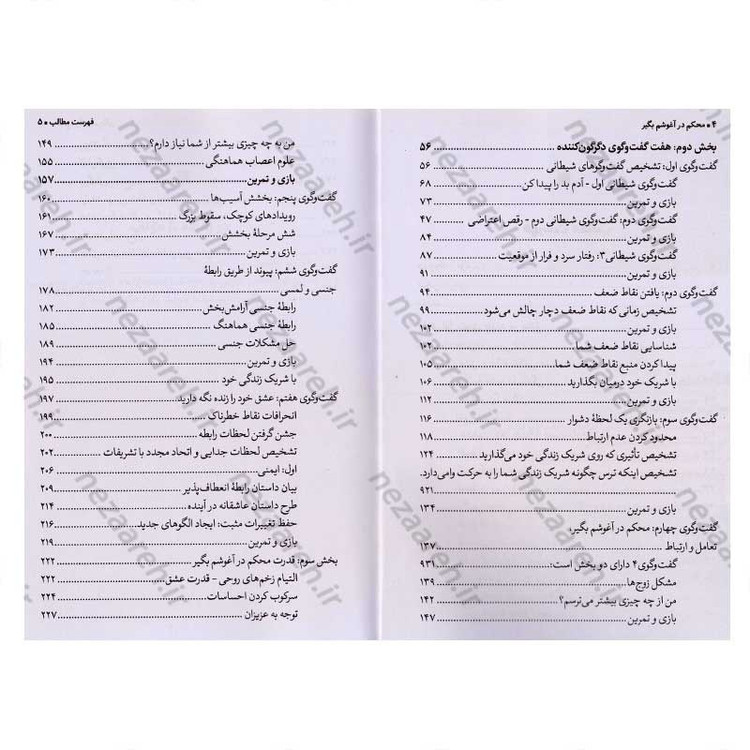 ۴ ■ محکم در آغوشم بگیر
بخش دوم: هفت گفت‌وگوی دگرگون‌کننده ۵۶
گفت‌وگوی اول: تشخیص گفت‌وگوهای شیطانی ۵۶
گفت‌وگوی شیطانی اول - آدم بد را پیدا کن ۶۸
بازی و تمرین ۷۳
گفت‌وگوی دوم: گفت‌وگوی شیطانی دوم - رقص اعتراضی ۴۷
بازی و تمرین ۸۴
گفت‌وگوی شیطانی۳: رفتار سرد و فرار از موقعیت ۸۷
بازی و تمرین ۹۱
گفت‌وگوی دوم: یافتن نقاط ضعف ۹۴
تشخیص زمانی که نقاط ضعف دچار چالش می‌شود ۹۹
بازی و تمرین ۱۰۲
شناسایی نقاط ضعف شما ۱۰۲
پیدا کردن منبع نقاط ضعف شما ۱۰۵
با شریک خود درمیان بگذارید ۱۰۶
بازی و تمرین ۱۱۲
گفت‌وگوی سوم: بازنگری یک لحظهٔ دشوار ۱۱۶
محدود کردن عدم ارتباط ۱۱۸
تشخیص تأثیری که روی شریک زندگی خود می‌گذارید ۱۲۴
تشخیص اینکه ترس چگونه شریک زندگی شما را به حرکت وامی‌دارد.
۹۲۱
بازی و تمرین ۱۳۴
گفت‌وگوی چهارم: محکم در آغوشم بگیر،
تعامل و ارتباط ۱۳۷
گفت‌وگوی۴ دارای دو بخش است: ۹۳۱
مشکل زوج‌ها ۱۳۹
من از چه چیزی بیشتر می‌ترسم؟ ۱۴۲
بازی و تمرین ۱۴۷
فهرست مطالب ■ ۵
من به چه چیزی بیشتر از شما نیاز دارم؟ ۱۴۹
علوم اعصاب هماهنگی ۱۵۵
بازی و تمرین ۱۵۷
گفت‌وگوی پنجم: بخشش آسیب‌ها ۱۶۰
رویدادهای کوچک، سقوط بزرگ ۱۶۱
شش مرحلهٔ بخشش ۱۶۷
بازی و تمرین ۱۷۳
گفت‌وگوی ششم: پیوند از طریق رابطهٔ
جنسی و لمسی ۱۷۸
رابطهٔ جنسی آرامش‌بخش ۱۸۲
رابطهٔ جنسی هماهنگ ۱۸۵
حل مشکلات جنسی ۱۸۹
بازی و تمرین ۱۹۴
با شریک زندگی خود ۱۹۵
گفت‌وگوی هفتم: عشق خود را زنده نگه دارید ۱۹۷
انحرافات نقاط خطرناک ۱۹۹
جشن گرفتن لحظات رابطه ۲۰۰
تشخیص لحظات جدایی و اتحاد مجدد با تشریفات ۲۰۲
اول: ایمنی ۲۰۶
بیان داستان رابطهٔ انعطاف‌پذیر ۲۰۹
طرح داستان عاشقانه در آینده ۲۱۴
حفظ تغییرات مثبت: ایجاد الگوهای جدید ۲۱۶
بازی و تمرین ۲۱۹
بخش سوم: قدرت محکم در آغوشم بگیر ۲۲۲
التیام زخم‌های روحی - قدرت عشق ۲۲۲
سرکوب کردن احساسات ۲۲۴
توجه به عزیزان ۲۲۷
nezaareh.ir